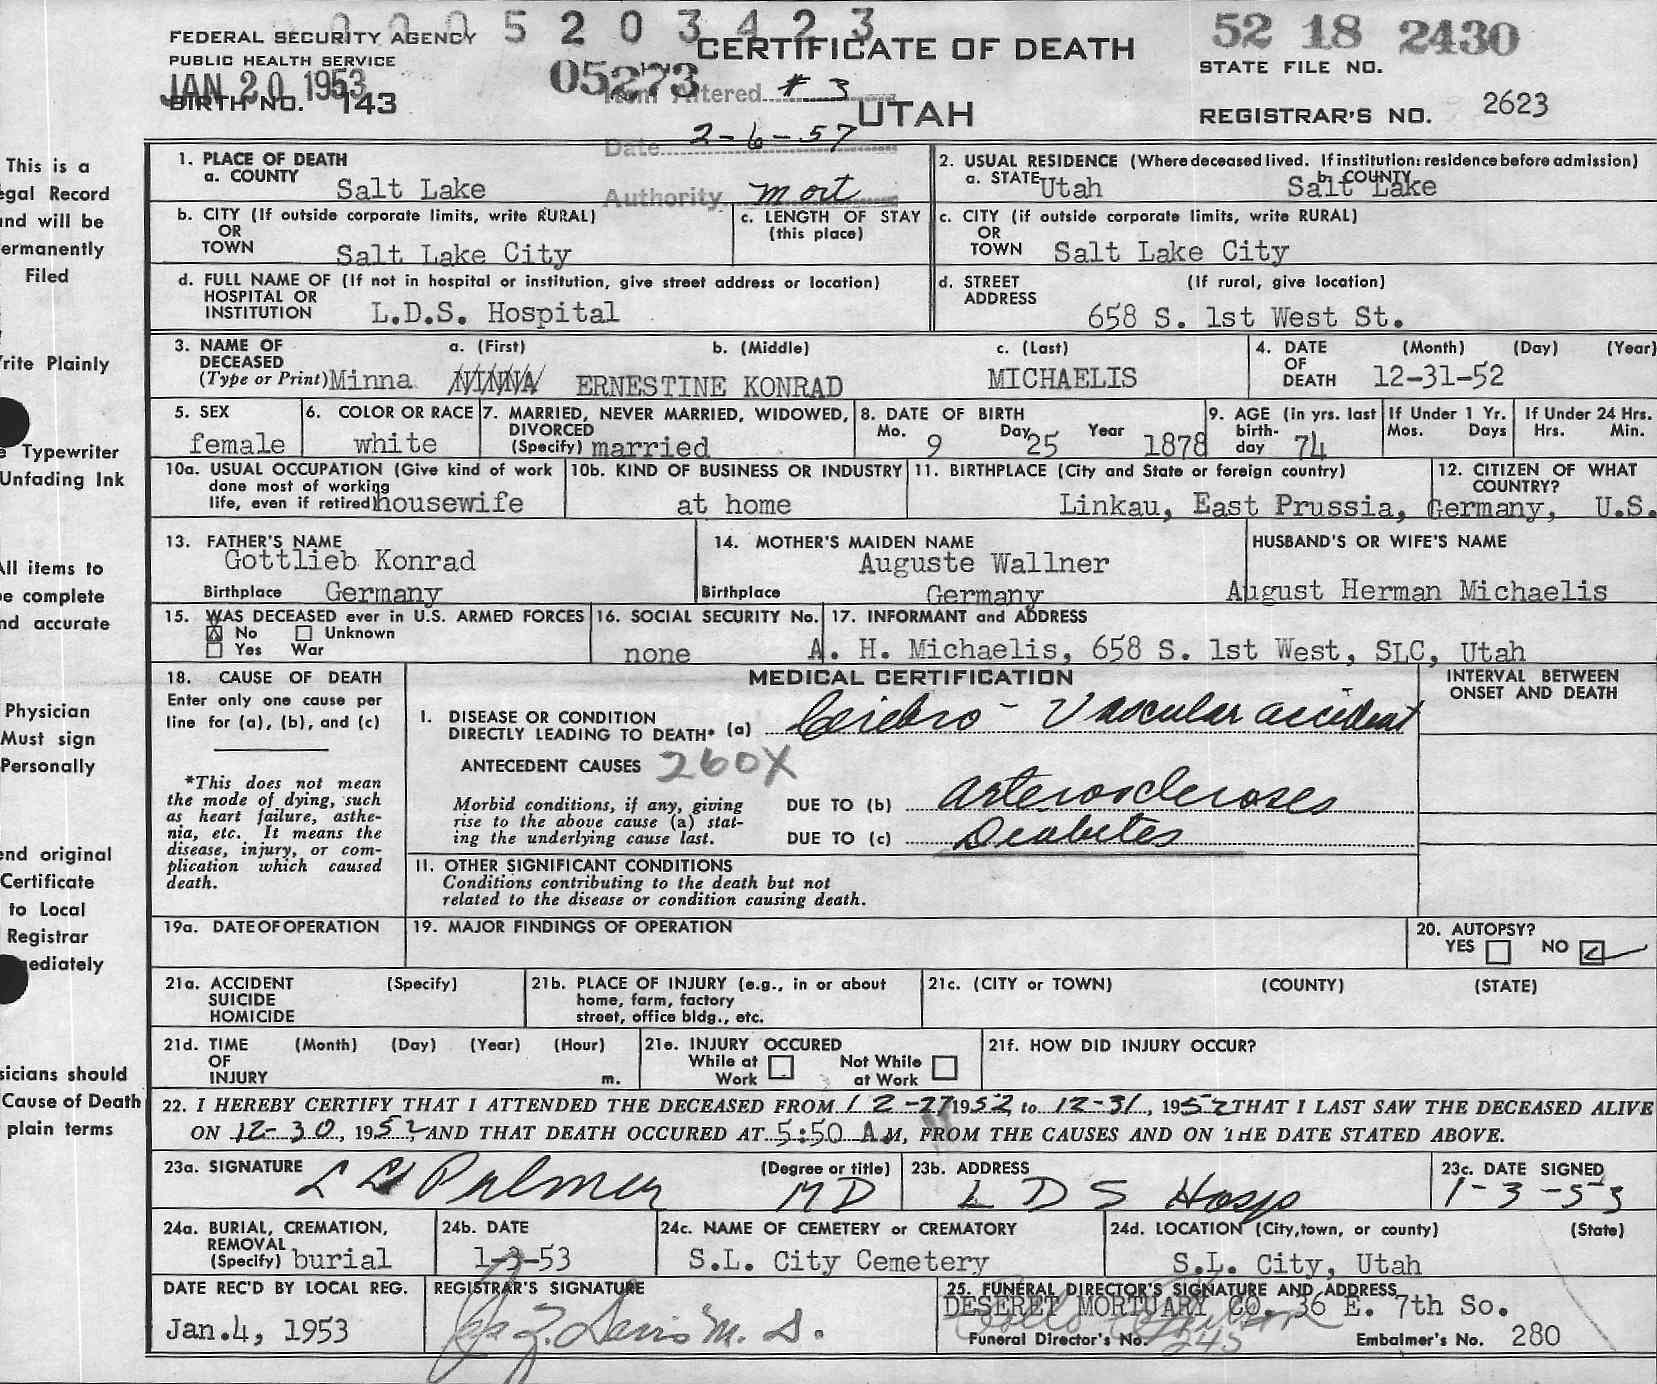 0 0 0 5 2 0 3 4 2 3
FEDERAL SECURITY AGENCY
PUBLIC HEALTH SERVICE
JAN 20 1953
BIRTH NO. 143
05273
CERTIFICATE OF DEATH
UTAH
Item Altered # 3
Date 2-6-57
Authority mort
52 18 2430
STATE FILE NO.
REGISTRAR'S NO. 2623
This is a
egal Record
and will be
ermanently
Filed
rite Plainly
e Typewriter
Unfading Ink
All items to
be complete
nd accurate
Physician
Must sign
Personally
end original
Certificate
to Local
Registrar
mediately
sicians should
Cause of Death
plain terms
1. PLACE OF DEATH
a. COUNTY Salt Lake
b. CITY (If outside corporate limits, write RURAL)
OR
TOWN Salt Lake City
c. LENGTH OF STAY
(this place)
d. FULL NAME OF (If not in hospital or institution, give street address or location)
HOSPITAL OR
INSTITUTION L.D.S. Hospital
2. USUAL RESIDENCE (Where deceased lived. If institution: residence before admission)
a. STATE Utah b. COUNTY Salt Lake
c. CITY (if outside corporate limits, write RURAL)
OR
TOWN Salt Lake City
d. STREET (If rural, give location)
ADDRESS 658 S. 1st West St.
3. NAME OF a. (First) b. (Middle) c. (Last)
DECEASED
(Type or Print) Minna NINNA ERNESTINE KONRAD MICHAELIS
4. DATE (Month) (Day) (Year)
OF
DEATH 12-31-52
5. SEX
female
6. COLOR OR RACE
white
7. MARRIED, NEVER MARRIED, WIDOWED,
DIVORCED
(Specify) married
8. DATE OF BIRTH
Mo. 9 Day 25 Year 1878
9. AGE (in yrs. last
birth-
day 74
If Under 1 Yr.
Mos. Days
If Under 24 Hrs.
Hrs. Min.
10a. USUAL OCCUPATION (Give kind of work
done most of working
life, even if retired) housewife
10b. KIND OF BUSINESS OR INDUSTRY
at home
11. BIRTHPLACE (City and State or foreign country)
Linkau, East Prussia, Germany,
12. CITIZEN OF WHAT
COUNTRY?
U.S.
13. FATHER'S NAME
Gottlieb Konrad
Birthplace Germany
14. MOTHER'S MAIDEN NAME
Auguste Wallner
Birthplace Germany
HUSBAND'S OR WIFE'S NAME
August Herman Michaelis
15. WAS DECEASED ever in U.S. ARMED FORCES
No Unknown
Yes War
16. SOCIAL SECURITY No.
none
17. INFORMANT and ADDRESS
A. H. Michaelis, 658 S. 1st West, SLC, Utah
18. CAUSE OF DEATH
Enter only one cause per
line for (a), (b), and (c)
*This does not mean
the mode of dying, such
as heart failure, asthe-
nia, etc. It means the
disease, injury, or com-
plication which caused
death.
MEDICAL CERTIFICATION
INTERVAL BETWEEN
ONSET AND DEATH
I. DISEASE OR CONDITION
DIRECTLY LEADING TO DEATH* (a) Cerebro - Vascular accident
ANTECEDENT CAUSES 260X
Morbid conditions, if any, giving
rise to the above cause (a) stat-
ing the underlying cause last.
DUE TO (b) arteroscleroses
DUE TO (c) Diabetes
II. OTHER SIGNIFICANT CONDITIONS
Conditions contributing to the death but not
related to the disease or condition causing death.
19a. DATE OF OPERATION
19. MAJOR FINDINGS OF OPERATION
20. AUTOPSY?
YES NO
21a. ACCIDENT (Specify)
SUICIDE
HOMICIDE
21b. PLACE OF INJURY (e.g., in or about
home, farm, factory
street, office bldg., etc.
21c. (CITY or TOWN) (COUNTY) (STATE)
21d. TIME (Month) (Day) (Year) (Hour)
OF
INJURY m.
21e. INJURY OCCURED
While at Not While
Work at Work
21f. HOW DID INJURY OCCUR?
22. I HEREBY CERTIFY THAT I ATTENDED THE DECEASED FROM 12-27 1952, to 12-31, 1952 THAT I LAST SAW THE DECEASED ALIVE
ON 12-30, 1952, AND THAT DEATH OCCURED AT 5:50 A M, FROM THE CAUSES AND ON THE DATE STATED ABOVE.
23a. SIGNATURE (Degree or title)
Palmer MD
23b. ADDRESS
L D S Hosp
23c. DATE SIGNED
1-3-53
24a. BURIAL, CREMATION,
REMOVAL
(Specify) burial
24b. DATE
1-3-53
24c. NAME OF CEMETERY or CREMATORY
S.L. City Cemetery
24d. LOCATION (City, town, or county) (State)
S.L. City, Utah
DATE REC'D BY LOCAL REG.
Jan.4, 1953
REGISTRAR'S SIGNATURE
M. D.
25. FUNERAL DIRECTOR'S SIGNATURE AND ADDRESS
DESERET MORTUARY CO. 36 E. 7th So.
Funeral Director's No. 245 Embalmer's No. 280